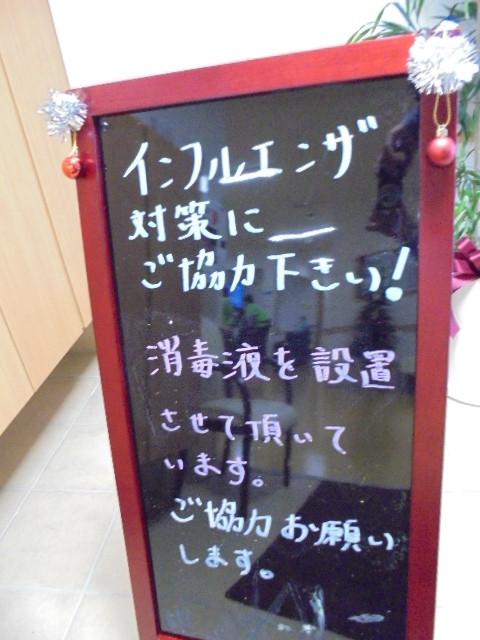 インフルエンザ
対策に
ご協力下さい!
消毒液を設置
させて頂いて
います。
ご協力お願い
します。